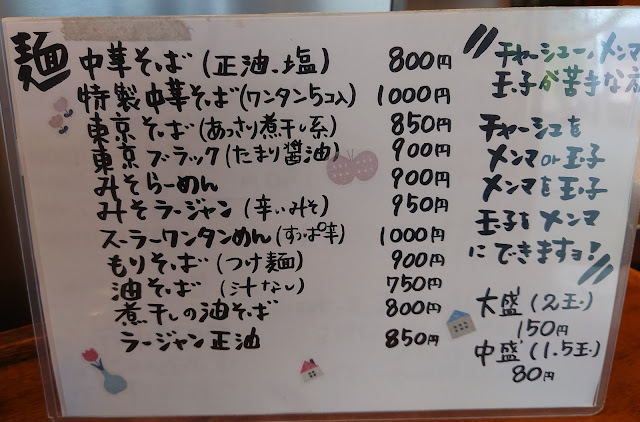 麺
中華そば(正油、塩) 800円
特製中華そば(ワンタン5コ入) 1000円
東京そば(あっさり煮干し系) 850円
東京ブラック(たまり醤油) 900円
みそらーめん 900円
みそラージャン(辛いみそ) 950円
スーラーワンタンめん(すっぱ辛) 1000円
もりそば(つけ麺) 900円
油そば(汁なし) 750円
煮干しの油そば 800円
ラージャン正油 850円
チャーシュー、メンマ
玉子が苦手な方
チャーシューを
メンマor玉子
メンマを玉子
玉子をメンマ
にできますョ!
大盛(2玉)
150円
中盛(1.5玉)
80円